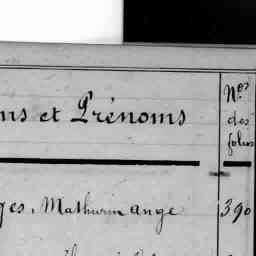 ns et Prénoms
Nos
des
folios
ges, Mathurin ange 390